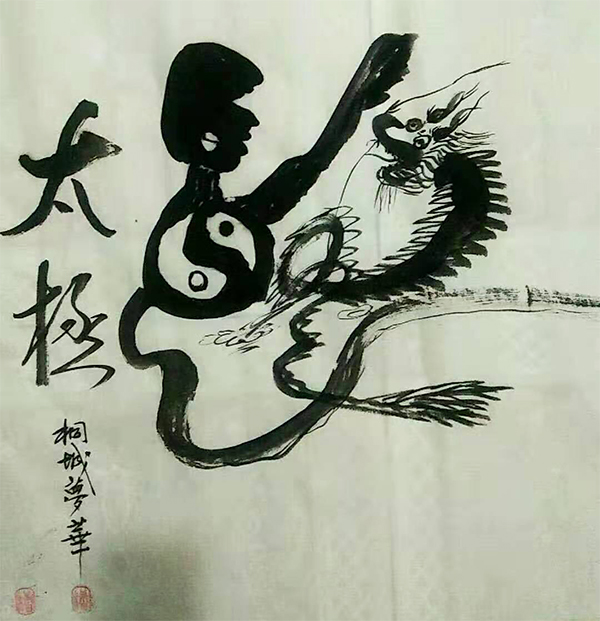 太极
桐城夢華